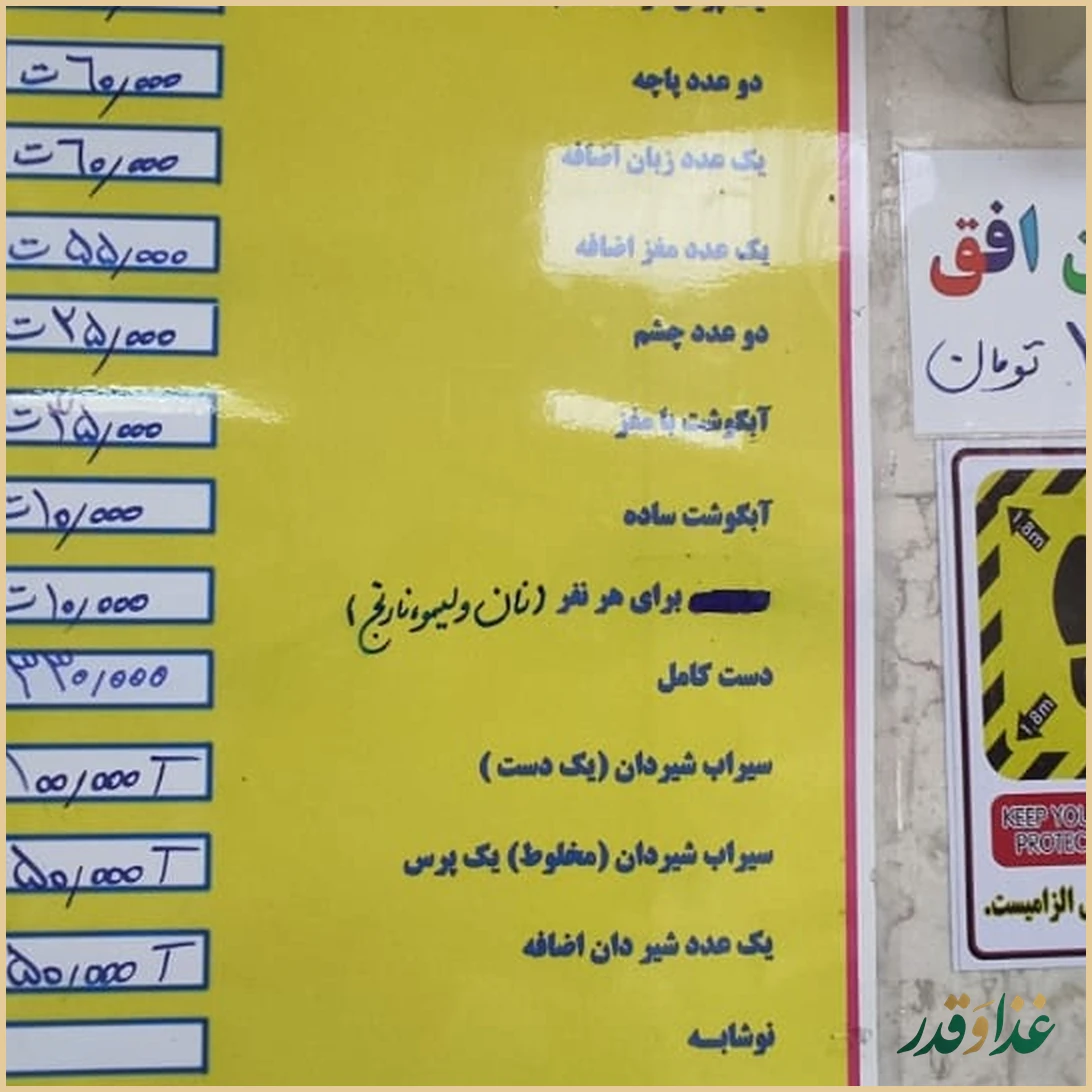 دو عدد پاچه ۶۰٫۰۰۰ ت
یک عدد زبان اضافه ۶۰٫۰۰۰ ت
یک عدد مغز اضافه ۵۵٫۰۰۰ ت
دو عدد چشم ۲۵٫۰۰۰ ت
آبگوشت با مغز ۳۵٫۰۰۰ ت
آبگوشت ساده ۱۰٫۰۰۰ ت
برای هر نفر (نان و لیمو، نارنج) ۱۰٫۰۰۰ ت
دست کامل ۳۳۰٫۰۰۰
سیراب شیردان (یک دست) ۱۰۰٫۰۰۰ T
سیراب شیردان (مخلوط) یک پرس ۵۰٫۰۰۰ T
یک عدد شیر دان اضافه ۵۰٫۰۰۰ T
نوشابـه
افق
تومان
1,8m
1,8m
KEEP
الزامیست.
غذا وَ قدر